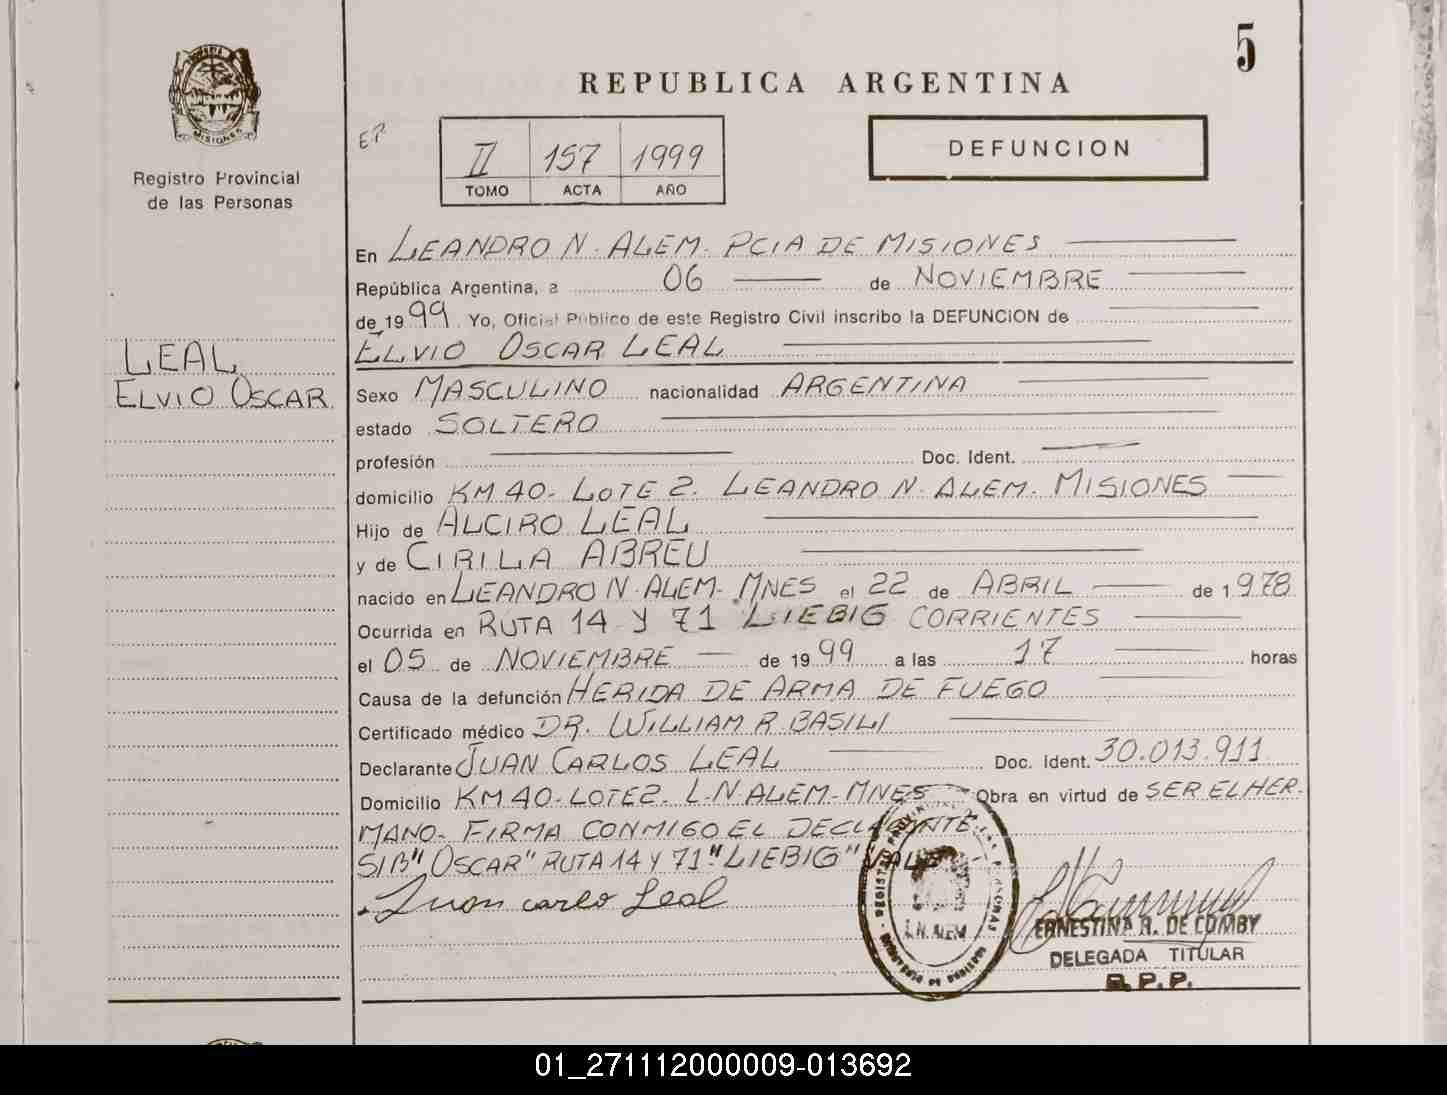 5
REPUBLICA ARGENTINA
MISIONES
Registro Provincial
de las Personas
II 157 1999
TOMO ACTA AÑO
DEFUNCION
LEAL
ELVIO OSCAR
En LEANDRO N. ALEM. PCIA DE MISIONES
República Argentina, a 06 de NOVIEMBRE
de 1999. Yo, Oficial Público de este Registro Civil inscribo la DEFUNCION de
ELVIO OSCAR LEAL
Sexo MASCULINO nacionalidad ARGENTINA
estado SOLTERO
profesión Doc. Ident.
domicilio KM 40- LOTE 2. LEANDRO N. ALEM. MISIONES
Hijo de ALCIRO LEAL
y de CIRILA ABREU
nacido en LEANDRO N. ALEM- MNES el 22 de ABRIL de 1978
Ocurrida en RUTA 14 Y 71 LIEBIG CORRIENTES
el 05 de NOVIEMBRE de 1999 a las 17 horas
Causa de la defunción HERIDA DE ARMA DE FUEGO
Certificado médico DR. WILLIAM R. BASILI
Declarante JUAN CARLOS LEAL Doc. Ident. 30.013.911
Domicilio KM 40- LOTE 2. L.N. ALEM- MNES Obra en virtud de SER EL HER-
MANO- FIRMA CONMIGO EL DECLARANTE
S/B "OSCAR" RUTA 14 Y 71 "LIEBIG" VALE
Juan carlo Leal
L.N. ALEM
ERNESTINA R. DE COMBY
DELEGADA TITULAR
R.P.P.
01_271112000009-013692